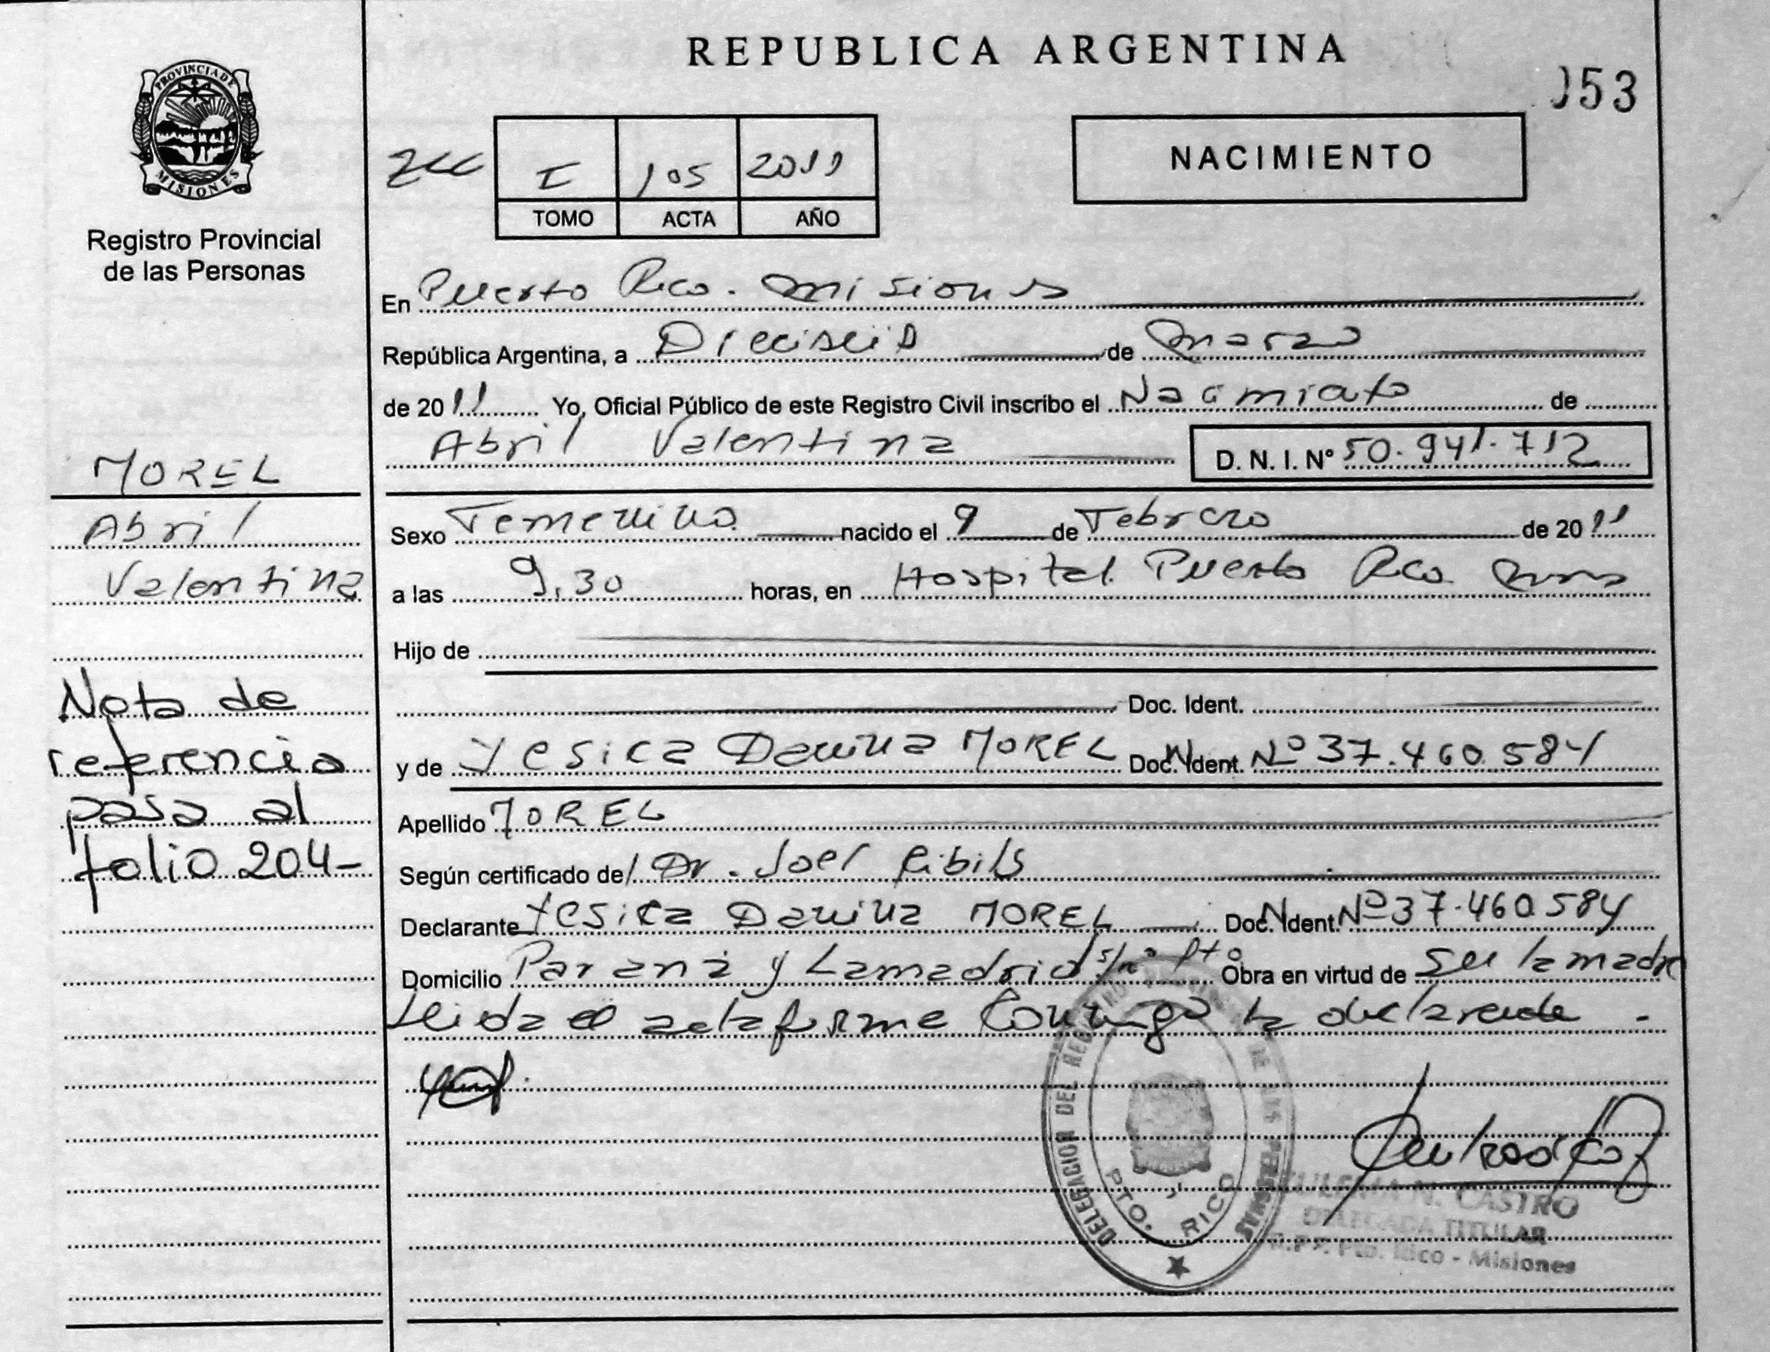 REPUBLICA ARGENTINA
053
PROVINCIA DE
MISIONES
Registro Provincial
de las Personas
I 105 2011
TOMO ACTA AÑO
NACIMIENTO
En Puerto Rico. Misiones
República Argentina, a Dieciseis de Marzo
de 2011 Yo, Oficial Público de este Registro Civil inscribo el Nacimiento de
Abril Valentina D. N. I. Nº 50.941.712
MOREL
Abril
Valentina
Nota de
referencia
pasa al
folio 204-
Sexo Femenino nacido el 9 de Febrero de 2011
a las 9,30 horas, en Hospital Puerto Rico. Mnes
Hijo de
Doc. Ident.
y de Yesica Danina MOREL Doc. Ident. Nº 37.460.584
Apellido MOREL
Según certificado de/ Dr. Joel
Declarante Yesica Danina MOREL Doc. Ident. Nº 37.460.584
Domicilio Paraná y Lamadrid s/nº Pto Obra en virtud de Ser la madre
Leida el acta firme Conmigo la declarante.
DELEGACION DEL REGISTRO PROVINCIAL DE LAS PERSONAS
PTO. RICO
N. CASTRO
DELEGADA TITULAR
R.P.P. Pto. Rico - Misiones